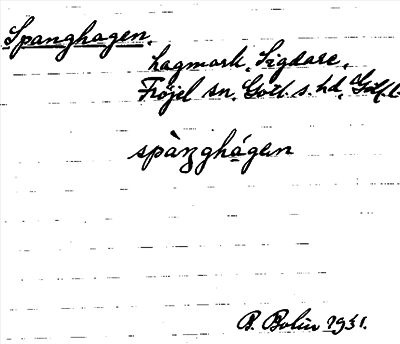 Spanghagen.
hagmark, Sigdare,
Fröjel sn, Gotl. s. hd,
spàŋghágen
B. Bolin 1931.